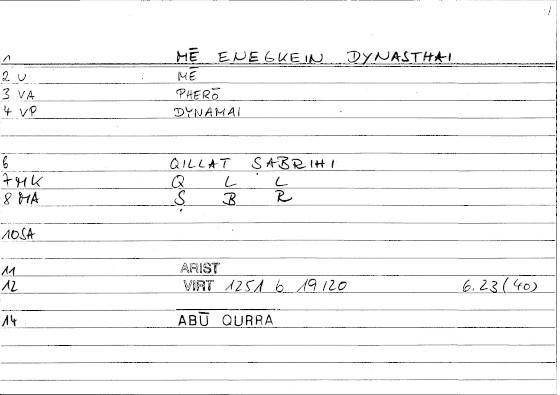 1 MĒ ENEGKEIN DYNASTHAI
2 U MĒ
3 VA PHERŌ
4 VP DYNAMAI
6 QILLAT ṢABRIHI
7 MK Q L L
8 MA Ṣ B R
10 SA
11 ARIST
12 VIRT 1251 b 19/20 6.23(40)
14 ABŪ QURRA